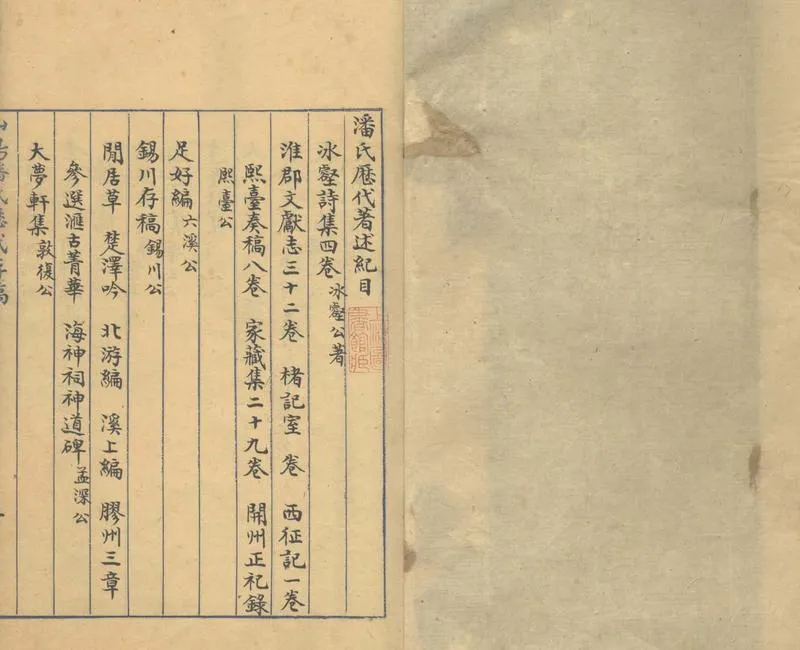 潘氏歷代著述紀目
冰壑詩集四卷 冰壑公著
淮郡文獻志三十二卷 楮記室 卷 西征記一卷
熙臺奏稿八卷 家藏集二十九卷 開州正祀錄
熙臺公
足好編 六溪公
錫川存稿 錫川公
閒居草 楚澤吟 北游編 溪上編 膠州三章
參選滙古菁華 海神祠神道碑 孟深公
大夢軒集 敦復公
山陽潘氏歷代存稿